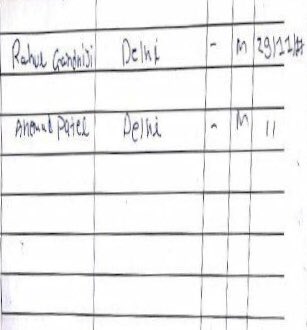 Rahul Gandhiji Delhi - M 29/11/
Ahemad Patel Delhi - M 11